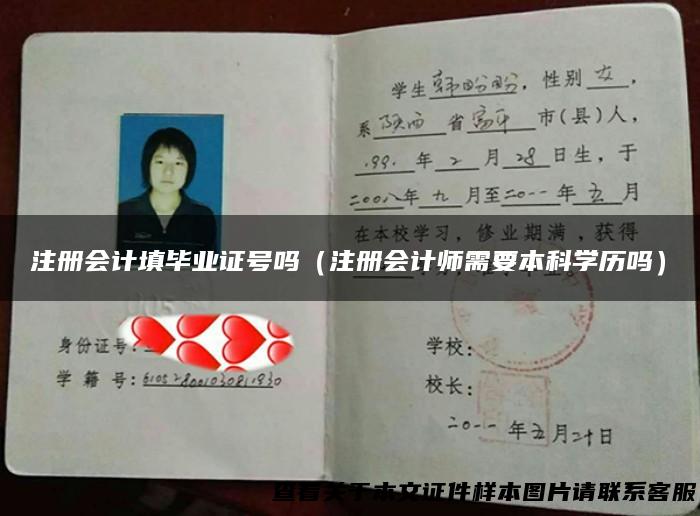 学生韩盼盼，性别女，
系陕西省富平市(县)人，
1991年2月28日生，于
二00八年九月至二0一一年五月
在本校学习，修业期满，获得
注册会计填毕业证号吗（注册会计师需要本科学历吗）
身份证号：
学籍号：
学校：
校长：
二0一一年五月二十日
查看关于本文证件样本图片请联系客服